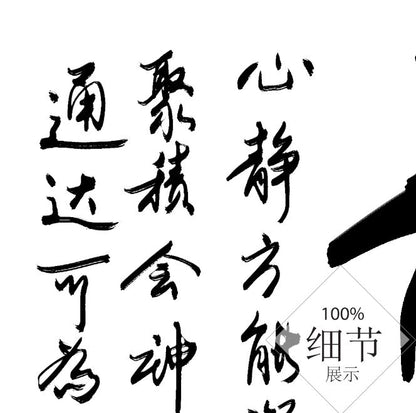 心静方能
聚積会神
通达可為
100%
细节
展示